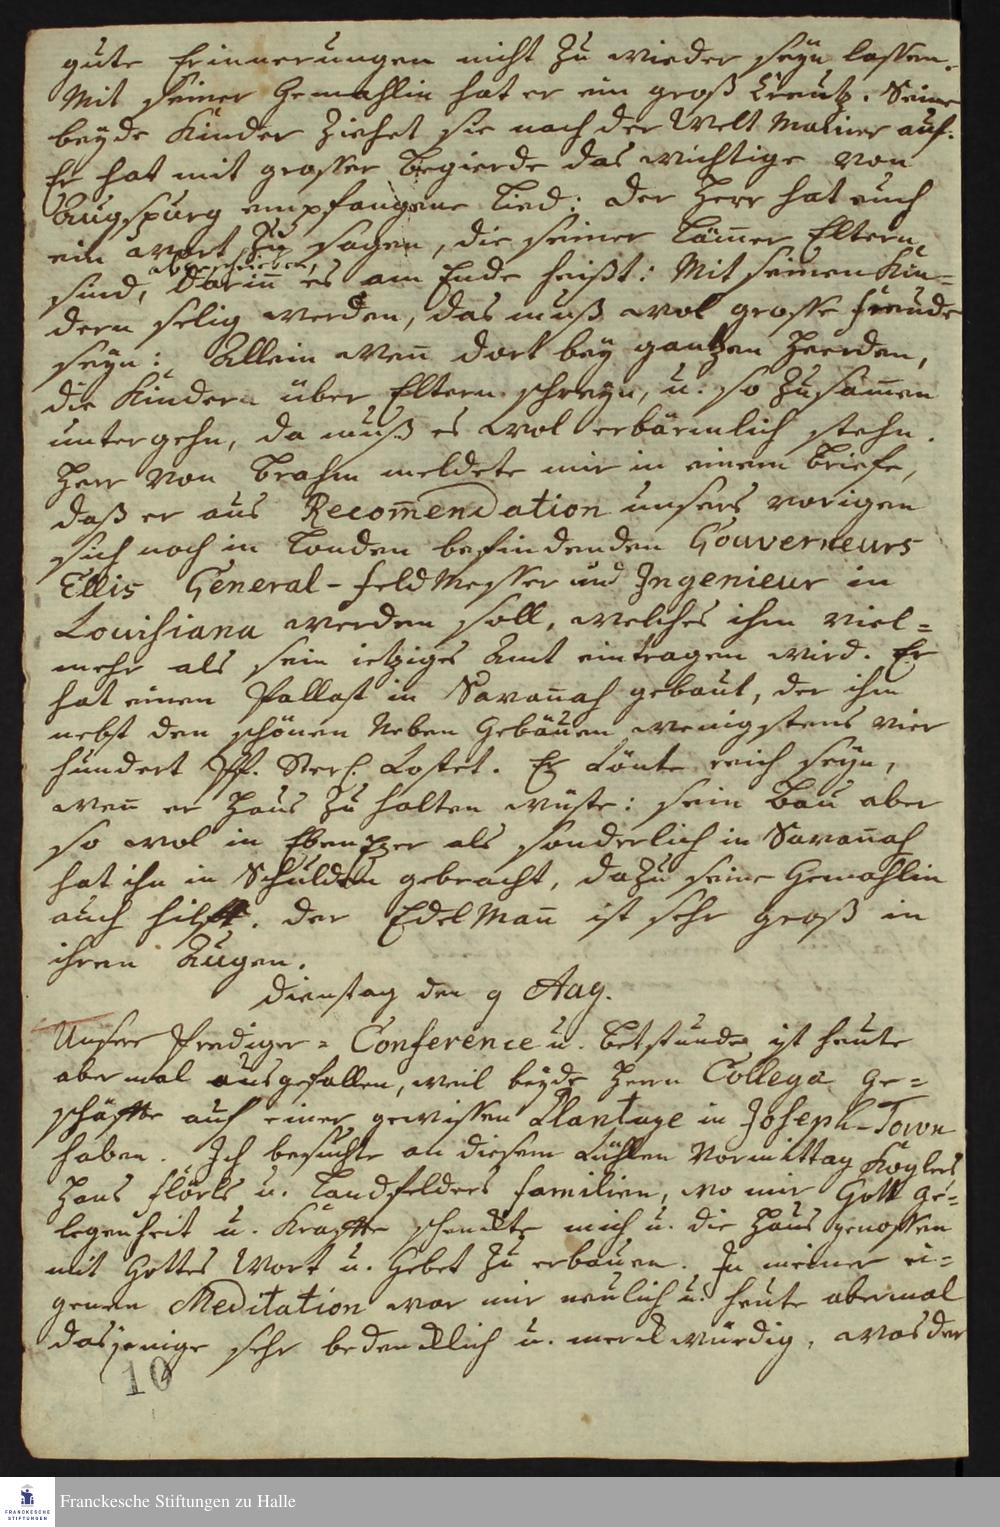 gute Erinnerungen nicht zu wieder seyn lassen.
Mit seiner Gemahlin hat er ein groß Creutz. Seine
beyde Kinder ziehet sie nach der Welt Manier auf.
Er hat mit grosser Begierde das wichtige von
Augspurg empfangene Lied: Der Herr hat euch
ein Wort zu sagen, die seiner Lämer Eltern
abgeschrieben,
sind, darin̅ es am Ende heißt: Mit seinen Kin=
dern selig werden, das muß wol grosse Freude
seyn: Allein wen̅ dort bey gantzen Heerden,
die Kinder über Eltern schreyn, u. so zusam̅en
untergehn, da muß es wol erbärmlich stehn.
Herr von Brahm meldete mir in einem Briefe,
daß er aus Recom̅endation unsers vorigen
sich noch in Londen befindenden Gouverneurs
Ellis General-Feld Messer und Ingenieur in
Louisiana werden soll, welches ihm viel=
mehr als sein ietziges Amt eintragen wird. Er
hat einen Pallast in Savan̅ah gebaut, der ihm
nebst den schönen Neben Gebäuen wenigstens vier
hundert Pf. Sterl. kostet. Er könte reich seyn,
wen̅ er Haus zu halten wüste: sein Bau aber
so wol in Ebenezer als sonderlich in Savan̅ah
hat ihn in Schulden gebracht, dazu seine Gemahlin
auch hilft. Der Edel Man̅ ist sehr groß in
ihren Augen.
Dienstag den 9 Aug.
Unsere Prediger=Conference u. Betstunde ist heute
abermal ausgefallen, weil beyde Herrn Collegä Ge=
schäffte auf einer gewissen Plantage in Joseph-Town
haben. Ich besuchte an diesem kühlen Vormittag Köglers
Hans Flörls u. Landfelders Familien, wo mir Gott Ge=
legenheit u. Kräffte schenckte mich u. die Hausgenossen
mit Gottes Wort u. Gebet zu erbauen. In meiner ei=
genen Meditation war mir neulich u. heute abermal
dasjenige sehr bedencklich u. merckwürdig, was der
10
FRANCKESCHE STIFTUNGEN
Franckesche Stiftungen zu Halle